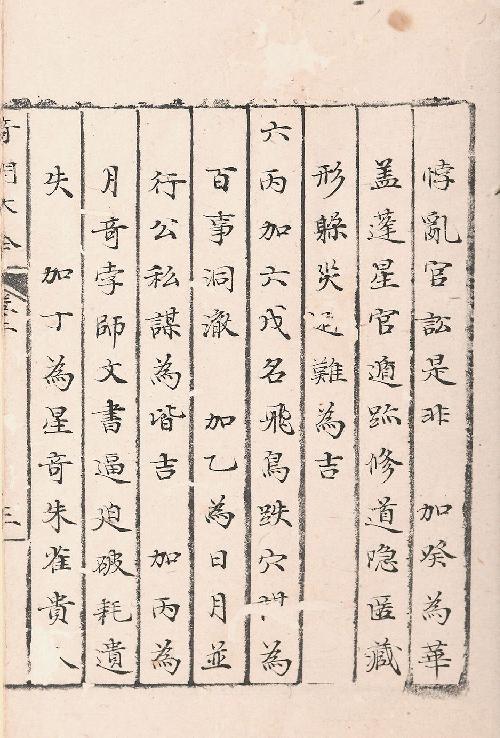 悖亂官訟是非　加癸為華
盖蓬星官遁跡修道隐匿藏
形躲災難為吉
六丙加六戊名飛鳥跌穴為
百事洞澈　加乙為日月並
行公私謀為皆吉　加丙為
月奇孛師文書逼迫破耗遺
失　加丁為星奇朱雀貴人
奇門大全